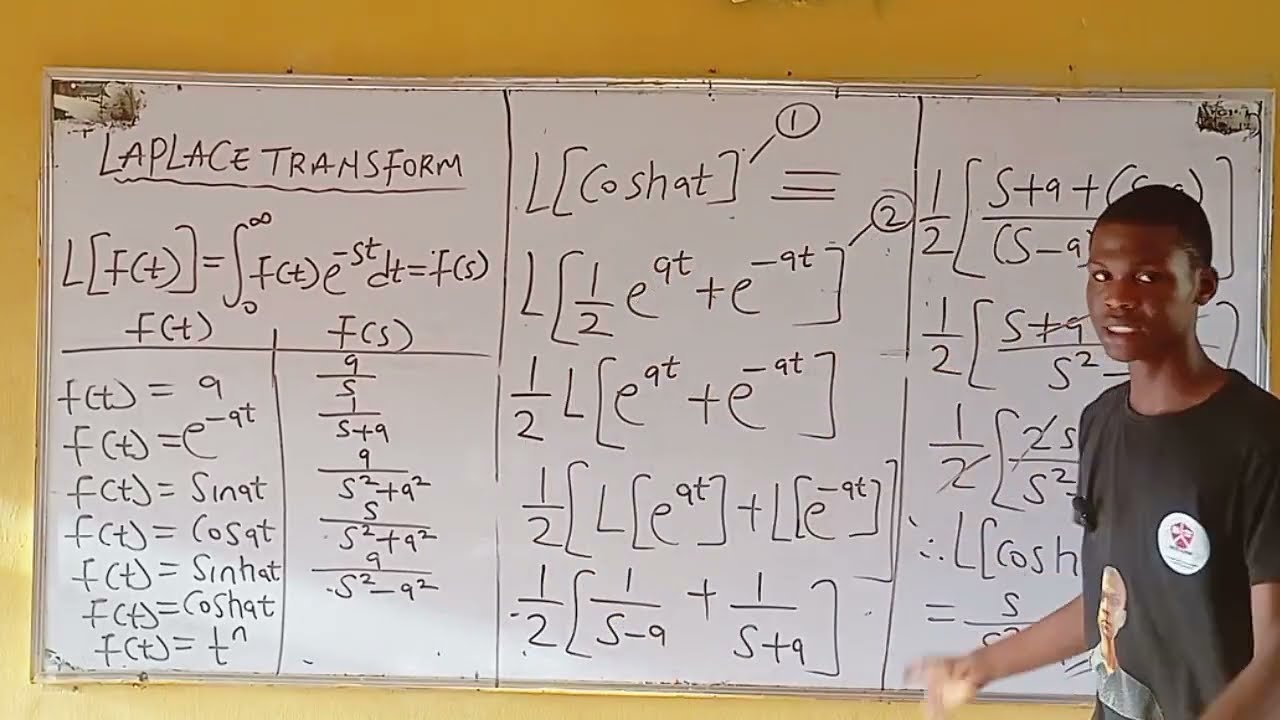 LAPLACE TRANSFORM
L[f(t)]=∫₀^∞ f(t)e^-st dt=f(s)
f(t) f(s)
f(t) = a a/s
f(t) =e^-at 1/s+a
f(t) = Sinat a/s²+a²
f(t) = Cosat s/s²+a²
f(t) = Sinhat a/s²-a²
f(t)=Coshat
f(t) = t^n
L[Coshat] ≡ 1
L[1/2 e^at + e^-at] 2
1/2 L[e^at + e^-at]
1/2[L[e^at] + L[e^-at]]
1/2[1/s-a + 1/s+a]
1/2[S+a+(
(S-a
1/2[S+a
S²-
1/2[2s
S²-
∴ L[Cosh
= s